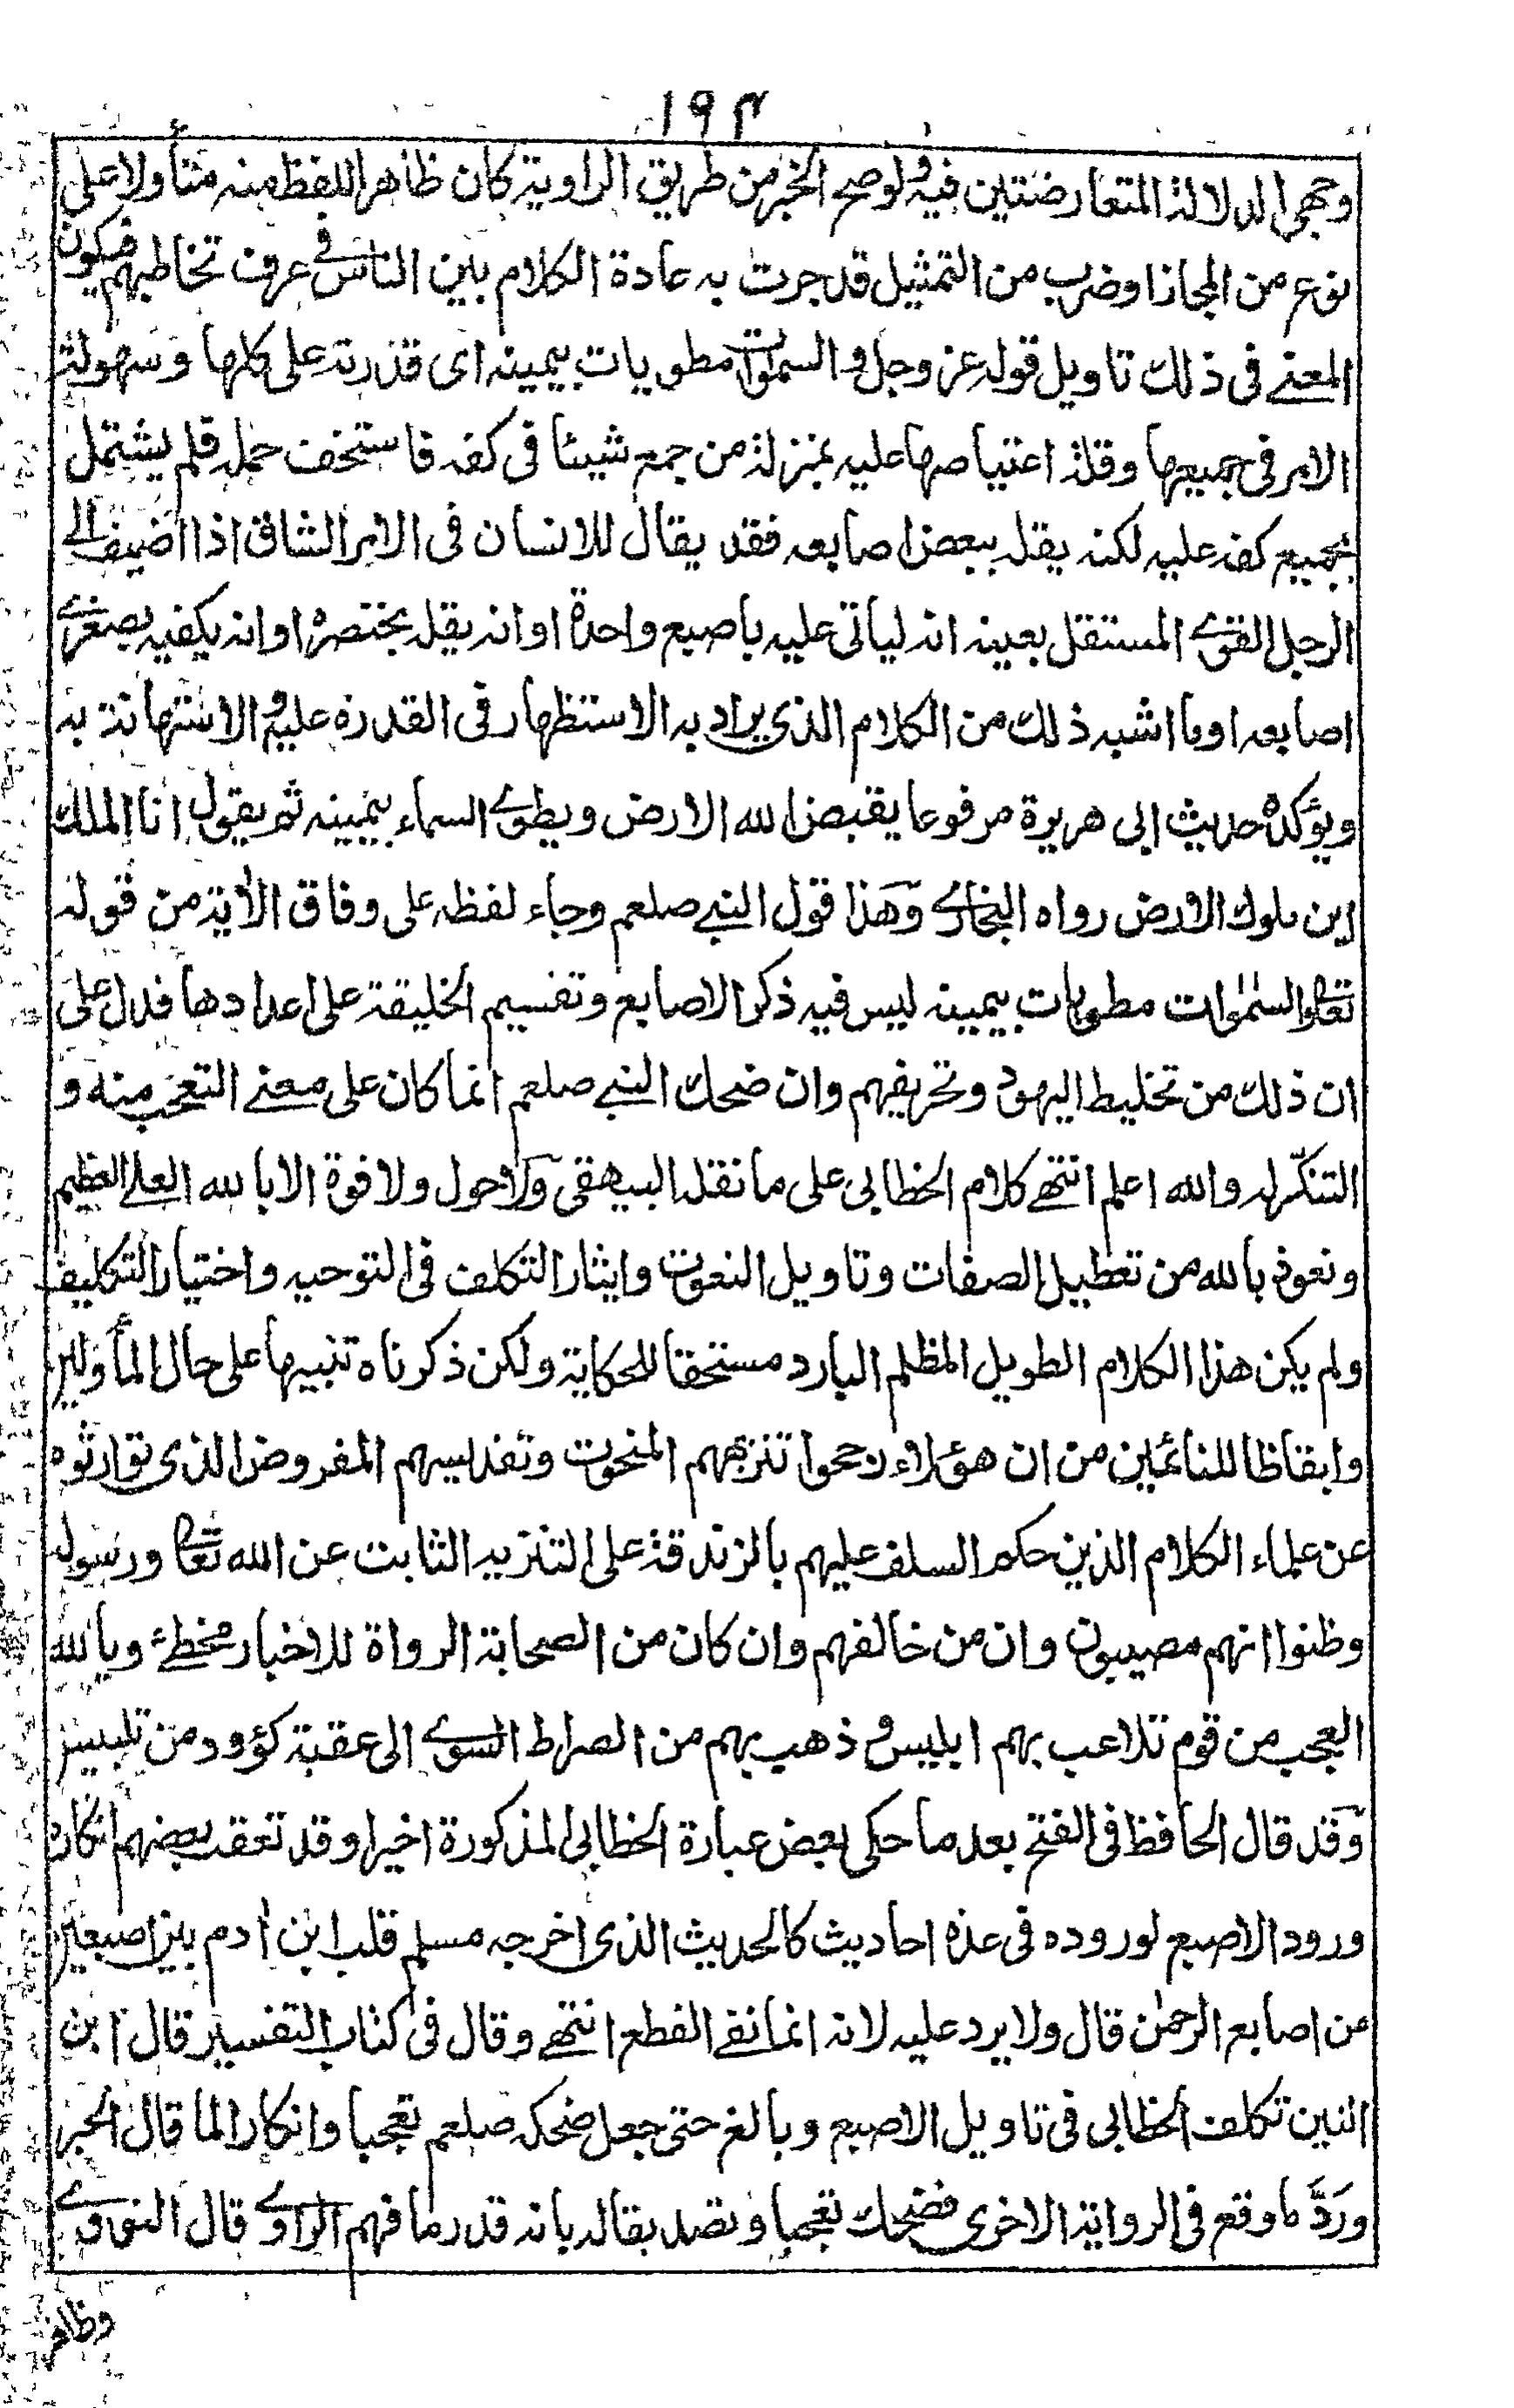 ١٩٣
وجهى الدلالة المتعارضتين فيه ولوصح الخبر من طريق الراوية كان ظاهر اللفظ منه متأولا على
نوع من المجاز اوضرب من التمثيل قد جرت به عادة الكلام بين الناس فى عرف تخاطبهم فيكون
المعنے فى ذلك تاويل قوله عز وجل والسموات مطويات بيمينه اى قدرته على كلها وسهولة
الامر فى جميعها وقلة اعتياصها عليه بمنزلة من جمع شيئا فى كفه فاستخف حمله فلم يشتمل
بجميع كفه عليه لكنه يقله ببعض اصابعه فقد يقال للانسان فى الامر الشاق اذا اضيف الے
الرجل القوے المستقل بعينه انه لياتى عليه باصبع واحدة او انه يقله بخنصره او انه يكفيه بصغرے
اصابعه او ما اشبه ذلك من الكلام الذى يراد به الاستظهار فى القدرة عليه والاستهانة به
ويؤكده حديث ابى هريرة مرفوعا يقبض الله الارض ويطوے السماء بيمينه ثم يقول انا الملك
اين ملوك الارض رواه البخارے وهذا قول النبے صلعم وجاء لفظه على وفاق الآية من قوله
تعالى والسمٰوات مطويات بيمينه ليس فيه ذكر الاصابع وتقسيم الخليقة على اعدادها فدل على
ان ذلك من تخليط اليهود وتحريفهم وان ضحك النبے صلعم انما كان على معنے التعجب منه و
التنكّر له والله اعلم انتهے كلام الخطابى على ما نقله البيهقى ولا حول ولا قوة الا بالله العلے العظيم
ونعوذ بالله من تعطيل الصفات وتاويل النعوت وايثار التكلف فى التوحيد واختيار التكليف
ولم يكن هذا الكلام الطويل المظلم البارد مستحقا للحكاية ولكن ذكرناه تنبيها على حال المأولين
وايقاظا للنائمين من ان هؤلاء رجحوا تنزيههم المنحوت وتقديسهم المفروض الذى توارثوه
عن علماء الكلام الذين حكم السلف عليهم بالزندقة على التنزيه الثابت عن الله تعالى ورسوله
وظنوا انهم مصيبون وان من خالفهم وان كان من الصحابة الرواة للاخبار مخطئ ويا لله
العجب من قوم تلاعب بهم ابليس وذهب بهم من الصراط السوے الى عقبة كؤود من تلبيس
وقد قال الحافظ فى الفتح بعد ما حكى بعض عبارة الخطابى المذكورة اخيرا وقد تعقب بعضهم انكار
ورود الاصبع لوروده فى عدة احاديث كالحديث الذى اخرجه مسلم قلب ابن آدم بين اصبعين
من اصابع الرحمٰن قال ولا يرد عليه لانه انما نفے القطع انتهے وقال فى كتاب التفسير قال ابن
التين تكلف الخطابى فى تاويل الاصبع وبالغ حتى جعل ضحكه صلعم تعجبا وانكارا لما قال الحبر
وردَّ ما وقع فى الرواية الاخرى فضحك تعجبا وتصديقا له بانه قدر ما فهم الراوے قال النووے
وظاهر